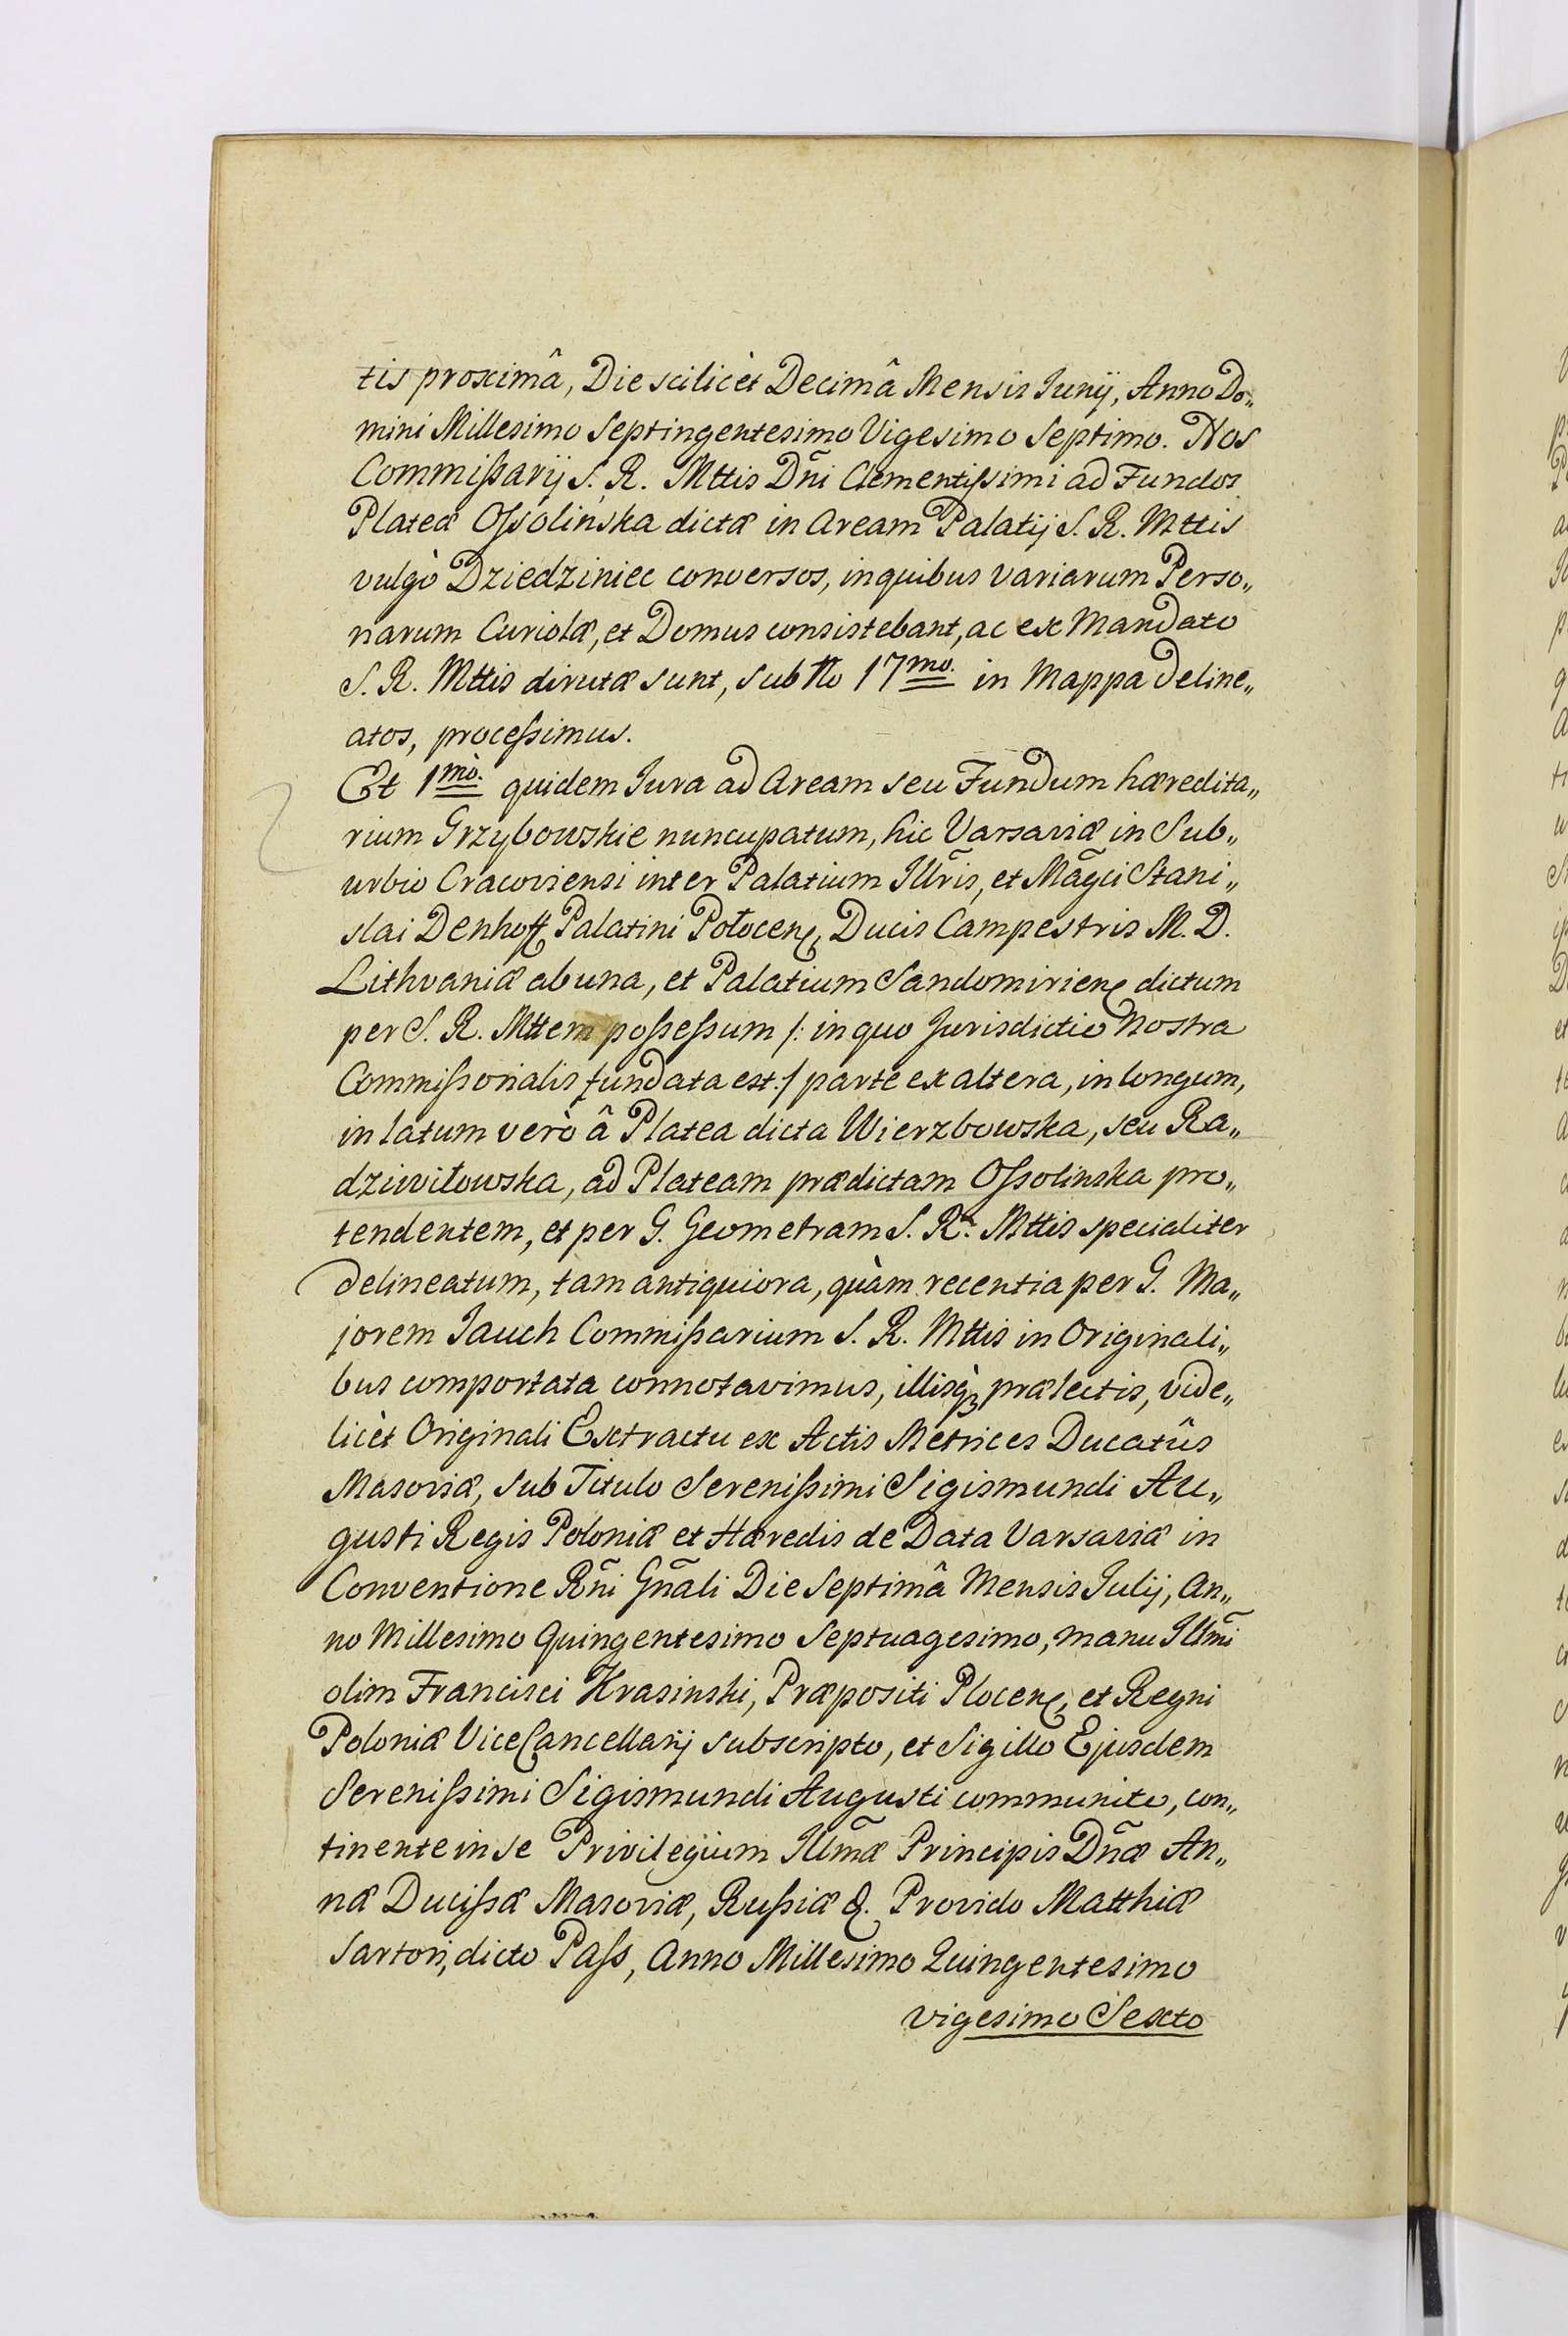 tis proximâ, Die scilicèt Decimâ Mensis Junij, Anno Do„
mini Millesimo Septingentesimo Vigesimo Septimo. Nos
Commißarij S. R. Mttis Dñi Clementißimi ad Fundos
Plateæ Oßolinska dictæ in Aream Palatij S. R. Mttis
vulgò Dziedziniec conversos, in quibus variarum Perso„
narum Curiolæ, et Domus consistebant, ac ex Mandato
S. R. Mttis dirutæ sunt, sub No 17mo. in Mappa deline„
atos, proceßimus.
Et 1mò. quidem Jura ad Aream seu Fundum hæredita„
rium Grzybowskie nuncupatum, hic Varsaviæ in Sub„
urbio Cracoviensi inter Palatium Illr̃is, et Mag̃ci Stani„
slai Denhoff Palatini Połocenȩ, Ducis Campestris M. D.
Lithvaniæ ab una, et Palatium Sandomirienȩ dictum
per S. R. Mttem poßeßum /: in quo Jurisdictio Nostra
Commißorialis fundata est :/ parte ex altera, in longum,
in latum verò â Platea dicta Wierzbowska, seu Ra„
dziwiłowska, ad Plateam prædictam Oßolinska pro„
tendentem, et per G. Geometram S. Ræ. Mttis specialiter
delineatum, tam antiquiora, quàm recentia per G. Ma„
jorem Jauch Commißarium S. R. Mttis in Originali„
bus comportata connotavimus, illisq̀ꝫ prælectis, vide„
licèt Originali Extractu ex Actis Metrices Ducatûs
Masoviæ, sub Titulo Serenißimi Sigismundi Au„
gusti Regis Poloniæ et Hæredis de Data Varsaviæ in
Conventione Rñi Gñali Die Septimâ Mensis Julij, An„
no Millesimo Quingentesimo Septuagesimo, manu Illm̃i
olim Francisci Krasinski, Præpositi Plocenȩ, et Regni
Poloniæ ViceCancellarij subscripto, et Sigillo Ejusdem
Serenißimi Sigismundi Augusti communito, con„
tinente in se Privilegium Illm̃æ Principis Dñæ An„
næ Ducißæ Masoviæ, Rußiæ &. Provido Matthiæ
Sartori, dicto Paß, Anno Millesimo Quingentesimo
vigesimo Sexto